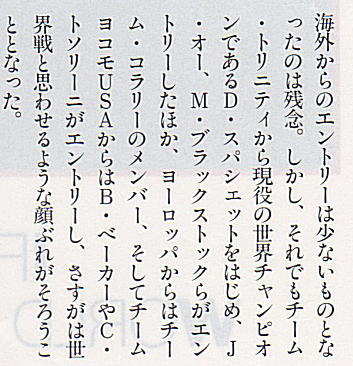 海外からのエントリーは少ないものとな
ったのは残念。しかし、それでもチーム
・トリニティから現役の世界チャンピオ
ンであるD・スパシェットをはじめ、J
・オー、M・ブラックストックらがエン
トリーしたほか、ヨーロッパからはチー
ム・コラリーのメンバー、そしてチーム
ヨコモUSAからはB・ベーカーやC・
トソリーニがエントリーし、さすがは世
界戦と思わせるような顔ぶれがそろうこ
ととなった。
WORLD